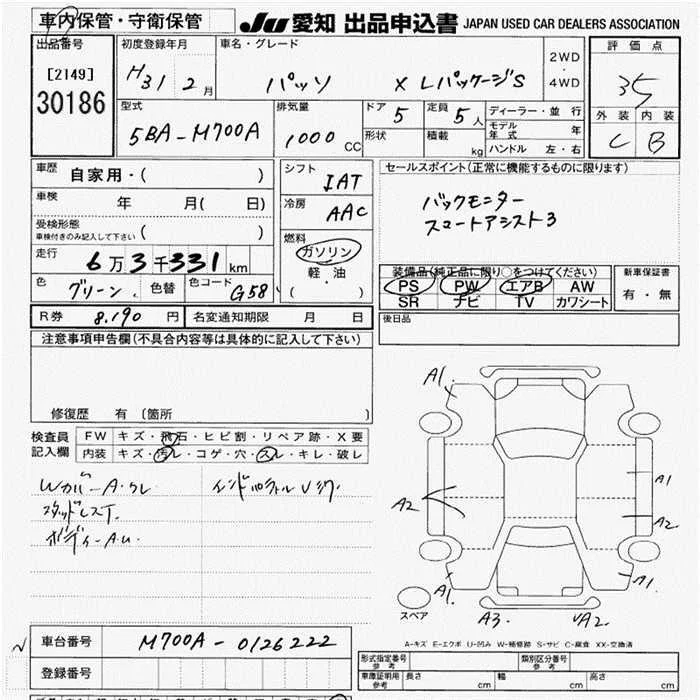 車内保管・守衛保管
JU 愛知 出品申込書 JAPAN USED CAR DEALERS ASSOCIATION
出品番号
[2149]
30186
初度登録年月
H31 2月
車名・グレード
パッソ X LパッケージS
2WD
・
4WD
評価点
3.5
外装 内装
C B
型式
5BA-M700A
排気量
1000 CC
ドア 5
定員 5人
形状
積載 kg
ディーラー・並行
モデル年式 年
ハンドル 左・右
車歴 自家用・( )
車検 年 月( 日)
受検形態
車検付きのみ記入して下さい ( )
走行 6万3千331km
色 グリーン 色替 色コード G58
シフト IAT
冷房 AAC
燃料
ガソリン
軽・油
( )
セールスポイント(正常に機能するものに限ります)
バックモニター
スマートアシスト3
装備品(純正品に限り○をつけてください)
PS PW エアB AW
SR ナビ TV カワシート
新車保証書
有・無
R券 8,190円 名変通知期限 月 日
後日品
注意事項申告欄(不具合内容等は具体的に記入して下さい)
修復歴 有〔箇所 〕
検査員記入欄
FW キズ・飛石・ヒビ割・リペア跡・X要
内装 キズ・汚レ・コゲ・穴・スレ・キレ・破レ
Wカバー A・クレ
スタッドレスT.
ボディー A.U.
A1
A1
A2
A2
A1
A1
A3
A2
スペア
A-キズ E-エクボ U-凹み W-補修跡 S-サビ C-腐食 XX-交換済
車台番号 M700A-0126222
登録番号
形式指定番号 参考
類別区分番号 参考
車庫証明用 参考 長さ cm 幅 cm 高さ cm